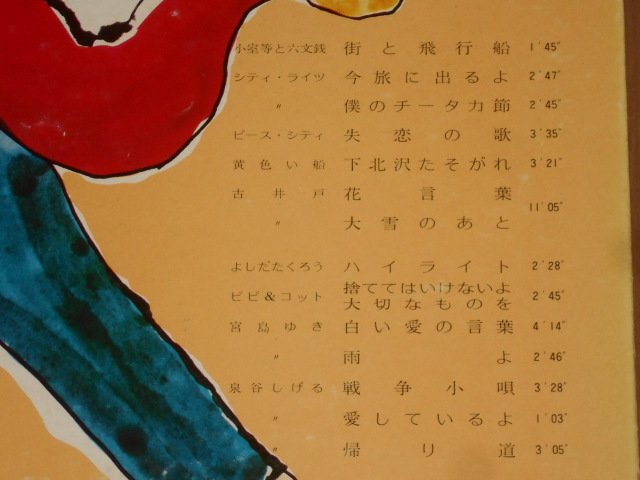 小室等と六文銭 街と飛行船 1′45″
シティ・ライツ 今旅に出るよ 2′47″
〃 僕のチータカ節 2′45″
ピース・シティ 失恋の歌 3′35″
黄色い船 下北沢たそがれ 3′21″
古井戸 花言葉
11′05″
〃 大雪のあと
よしだたくろう ハイライト 2′28″
ピピ&コット 捨ててはいけないよ
大切なものを 2′45″
宮島ゆき 白い愛の言葉 4′14″
〃 雨よ 2′46″
泉谷しげる 戦争小唄 3′28″
〃 愛しているよ 1′03″
〃 帰り道 3′05″